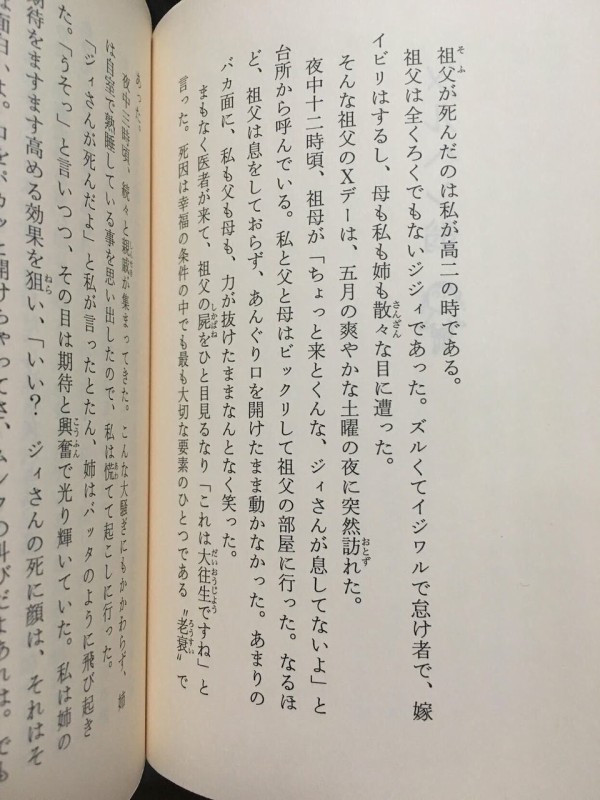 そふ
祖父が死んだのは私が高二の時である。
祖父は全くろくでもないジジィであった。ズルくてイジワルで怠け者で、嫁
さんざん
イビリはするし、母も私も姉も散々な目に遭った。
おとず
そんな祖父のXデーは、五月の爽やかな土曜の夜に突然訪れた。
夜中十二時頃、祖母が「ちょっと来とくんな、ジィさんが息してないよ」と
台所から呼んでいる。私と父と母はビックリして祖父の部屋に行った。なるほ
ど、祖父は息をしておらず、あんぐり口を開けたまま動かなかった。あまりの
バカ面に、私も父も母も、力が抜けたままなんとなく笑った。
しかばね だいおうじよう
まもなく医者が来て、祖父の屍をひと目見るなり「これは大往生ですね」と
ろうすい
言った。死因は幸福の条件の中でも最も大切な要素のひとつである〝老衰〟で
あった。
夜中三時頃、続々と親戚が集まってきた。こんな大騒ぎにもかかわらず、姉
は自室で熟睡している事を思い出したので、私は慌てて起こしに行った。
「ジィさんが死んだよ」と私が言ったとたん、姉はバッタのように飛び起き
こうふん
た。「うそっ」と言いつつ、その目は期待と興奮で光り輝いていた。私は姉の
ねら
期待をますます高める効果を狙い、「いい？　ジィさんの死に顔は、それはそ
面白いよ。口をパカッと開けちゃってさ、ムンクの叫びだよあれは。でも